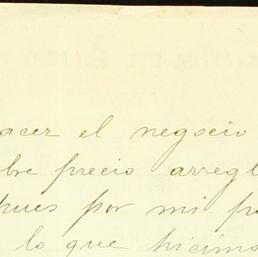 acer el negocio
bre precio arregl
pues por mi p
lo que hicimo